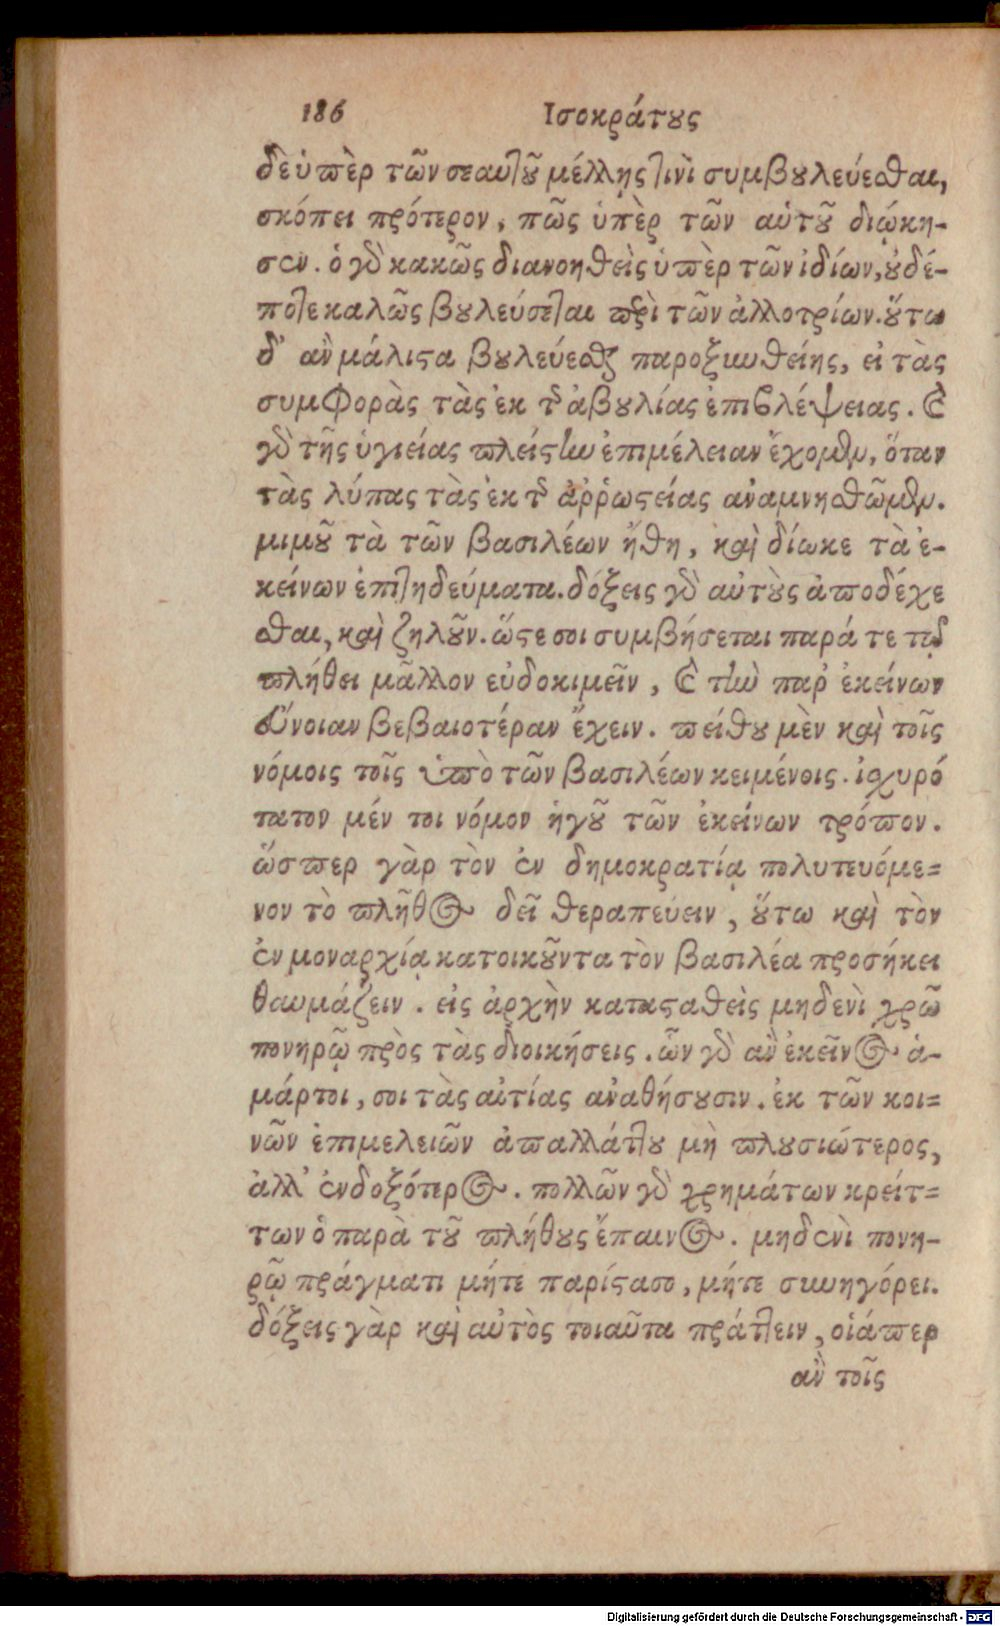 186 Ισοκράτους
δὲ ὑπὲρ τῶν σεαυτοῦ μέλλῃς τινὶ συμβουλεύεσθαι,
σκόπει πρότερον, πῶς ὑπὲρ τῶν αὑτοῦ διῴκη-
σεν. ὁ γὸ κακῶς διανοηθεὶς ὑπὲρ τῶν ἰδίων, οὐδέ-
ποτε καλῶς βουλεύσεται περὶ τῶν ἀλλοτρίων. οὕτω
δ' ἂν μάλιστα βουλεύεσθαι παροξυνθείης, εἰ τὰς
συμφορὰς τὰς ἐκ τῆς ἀβουλίας ἐπιβλέψειας. καὶ
γὸ τῆς ὑγιείας πλείστην ἐπιμέλειαν ἔχομεν, ὅταν
τὰς λύπας τὰς ἐκ τῆς ἀῤῥωστείας ἀναμνησθῶμεν.
μιμοῦ τὰ τῶν βασιλέων ἤθη, καὶ δίωκε τὰ ἐ-
κείνων ἐπιτηδεύματα. δόξεις γὸ αὐτοὺς ἀποδέχε
σθαι, καὶ ζηλοῦν. ὥστε σοι συμβήσεται παρά τε τῷ
πλήθει μᾶλλον εὐδοκιμεῖν, καὶ τὴν παρ' ἐκείνων
εὔνοιαν βεβαιοτέραν ἔχειν. πείθου μὲν καὶ τοῖς
νόμοις τοῖς ὑπὸ τῶν βασιλέων κειμένοις. ἰσχυρό
τατον μέν τοι νόμον ἡγοῦ τῶν ἐκείνων τρόπον.
ὥσπερ γὰρ τὸν ἐν δημοκρατίᾳ πολυτευόμε=
νον τὸ πλῆθος δεῖ θεραπεύειν, οὕτω καὶ τὸν
ἐν μοναρχίᾳ κατοικοῦντα τὸν βασιλέα προσήκει
θαυμάζειν. εἰς ἀρχὴν κατασταθεὶς μηδενὶ χρῶ
πονηρῷ πρὸς τὰς διοικήσεις. ὧν γὸ ἂν ἐκεῖνος ἁ-
μάρτοι, σοι τὰς αἰτίας ἀναθήσουσιν. ἐκ τῶν κοι=
νῶν ἐπιμελειῶν ἀπαλλάττου μὴ πλουσιώτερος,
ἀλλ' ἐνδοξότερος. πολλῶν γὸ χρημάτων κρείτ=
των ὁ παρὰ τοῦ πλήθους ἔπαινος. μηδενὶ πονη-
ρῷ πράγματι μήτε παρίστασο, μήτε συνηγόρει.
δόξεις γὰρ καὶ αὐτὸς τοιαῦτα πράττειν, οἱάπερ
ἂν τοῖς
Digitalisierung gefördert durch die Deutsche Forschungsgemeinschaft - DFG